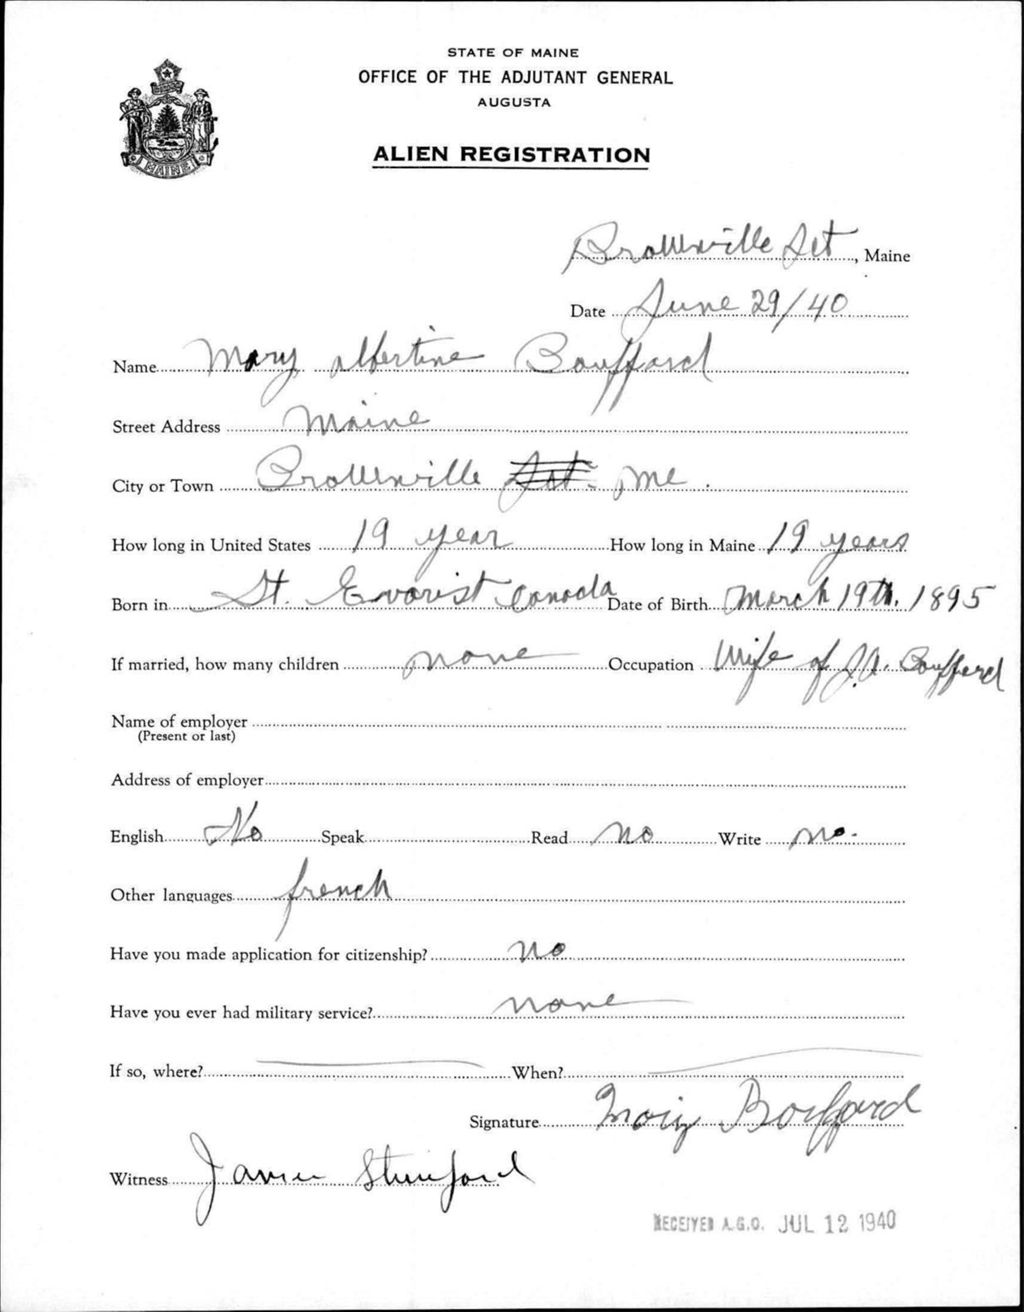 STATE OF MAINE
OFFICE OF THE ADJUTANT GENERAL
AUGUSTA
ALIEN REGISTRATION
MAINE
Brownville Jct, Maine
Date June 29/40
Name Mary Albertine Bouffard
Street Address Maine
City or Town Brownville Jct. Me.
How long in United States 19 year How long in Maine 19 years
Born in St. Evarist Canada Date of Birth March 19th, 1895
If married, how many children none Occupation Wife of J.A. Bouffard
Name of employer
(Present or last)
Address of employer
English No Speak Read no Write no.
Other languages french
Have you made application for citizenship? no
Have you ever had military service? none
If so, where? When?
Signature Mary Bouffard
Witness
RECEIVED A.G.O. JUL 12 1940